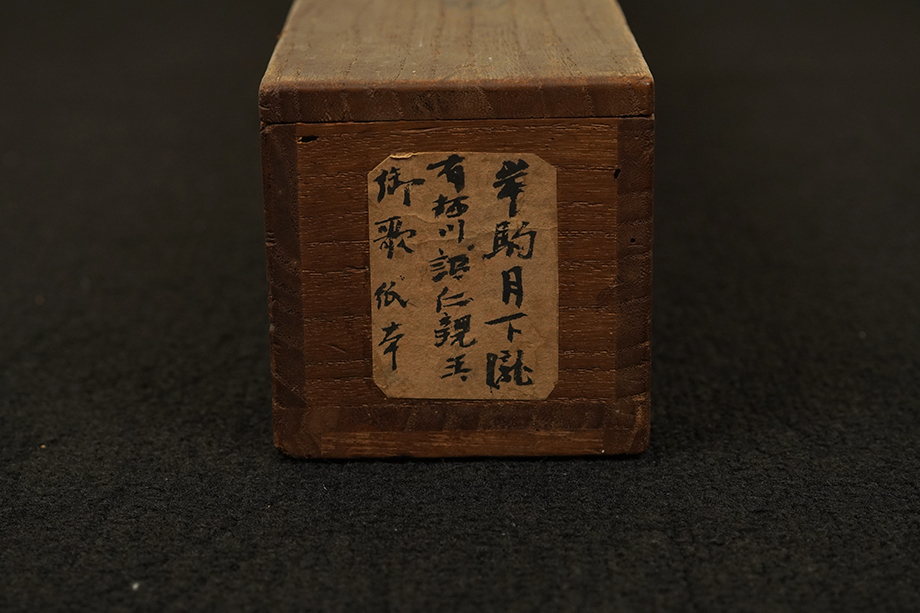 岸駒月下瀧
有栖川韶仁親王
御歌 紙本